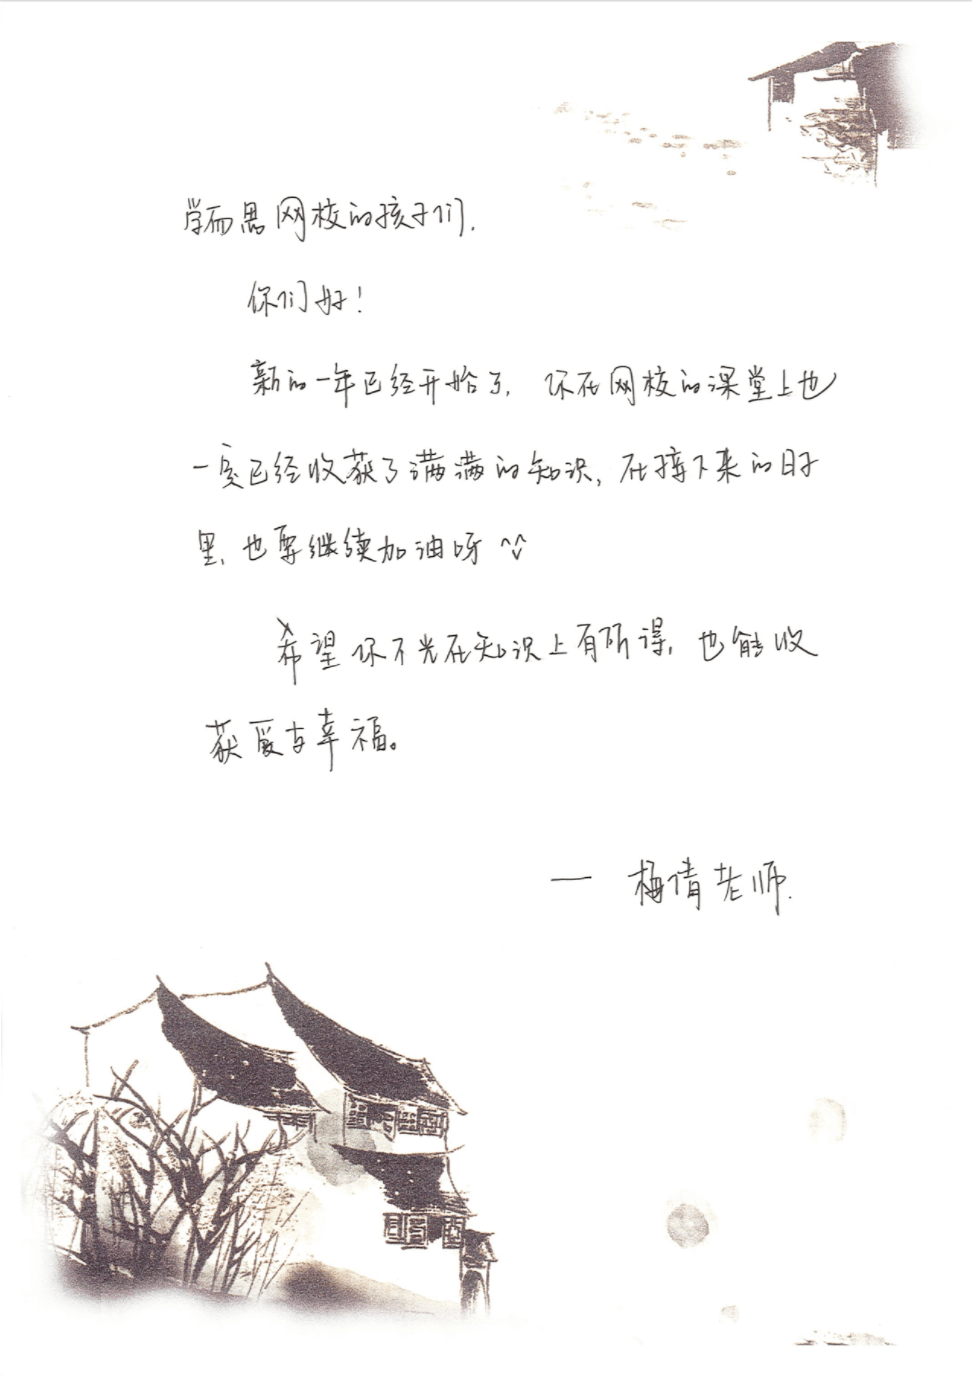 学而思网校的孩子们.
你们好!
新的一年已经开始了, 你在网校的课堂上也
一定已经收获了满满的知识, 在接下来的日子
里, 也要继续加油呀 ^v^
希望你不光在知识上有所得, 也能收
获爱与幸福。
— 梅倩老师.